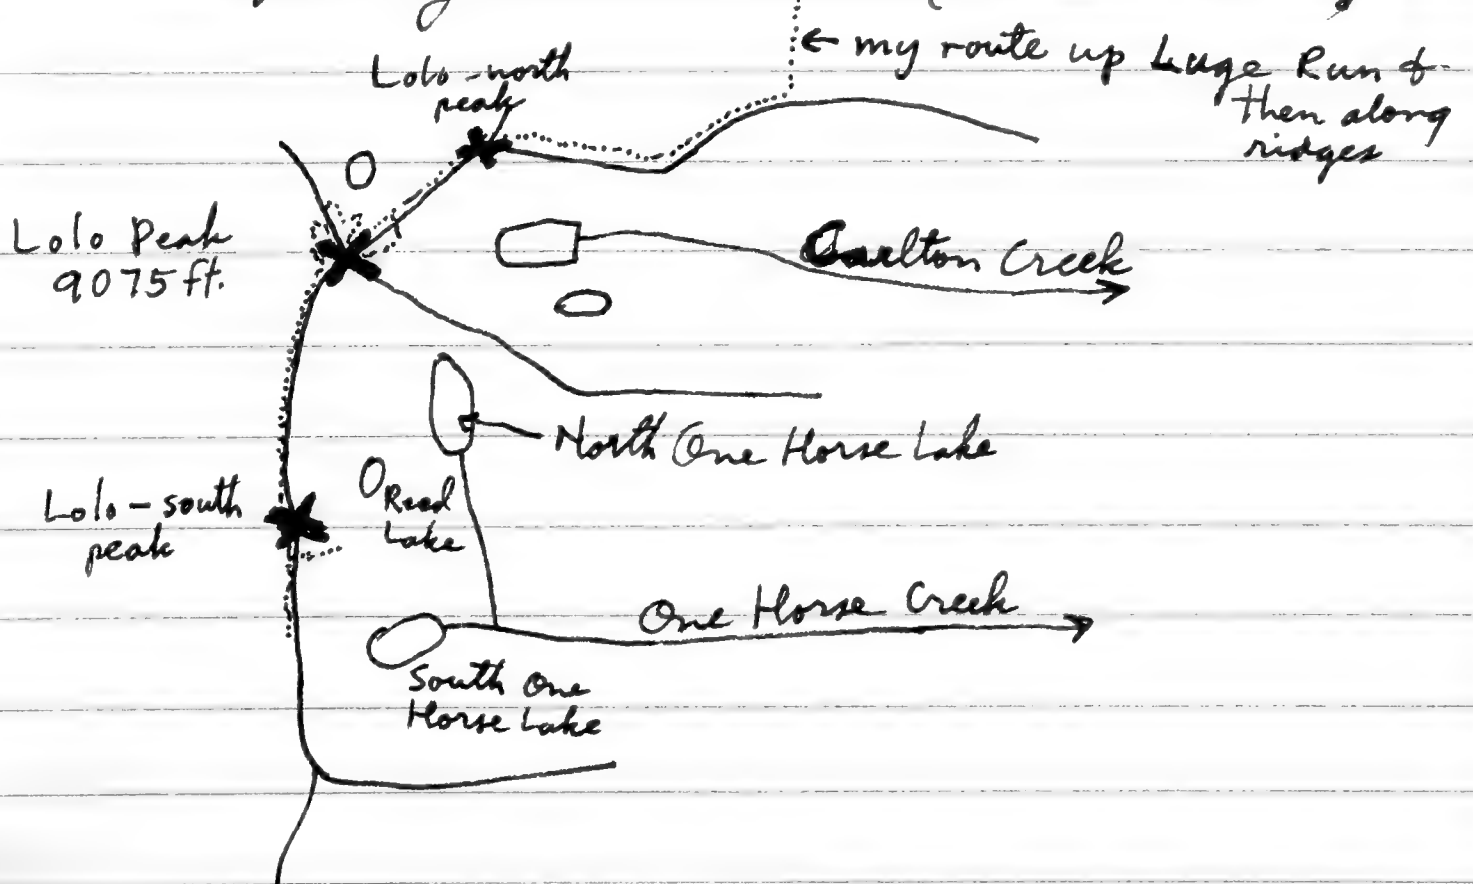 ← my route up Luge Run &
then along
ridges
Lolo - north
peak
Lolo Peak
9075 ft.
Carlton Creek
North One Horse Lake
Reed
Lake
Lolo - south
peak
One Horse Creek
South One
Horse Lake